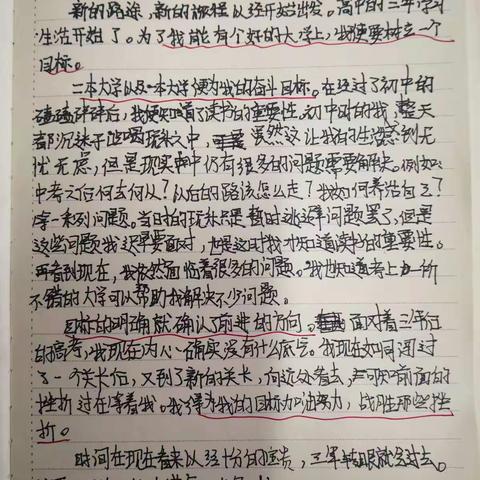 新的路途，新的旅程以经开始出发。高中的三年学习
生活开始了。为了我能有个好的大学上，我便要树立一个
目标。
二本大学以及一本大学便为我的奋斗目标。在经过了初中的
磕磕碰碰后，我便知道了读书的重要性。初中时的我，整天
都沉迷于吃喝玩乐之中，虽然这让我的生活感到无
忧无虑，但是现实中仍有很多的问题需要解决。例如：
中考之后何去何从？以后的路该怎么走？我如何养活自己？
等一系列问题。当时的玩乐只是暂时逃避问题罢了，但是
这些问题我迟早要面对，也是这时我才知道读书的重要性。
再看到现在，我依然面临着很多的问题。我也知道考上一所
不错的大学可以帮助我解决不少问题。
目标的明确就确认了前进的方向。面对着三年后
的高考，我现在内心确实没有什么底气。我现在如同通过
了一个关卡后，又到了新的关卡，向远处看去，前面的
挫折还在等着我。我得为我的目标加油努力，战胜那些挫
折。
时间在现在看来以经十分的宝贵，三年转眼就会过去。